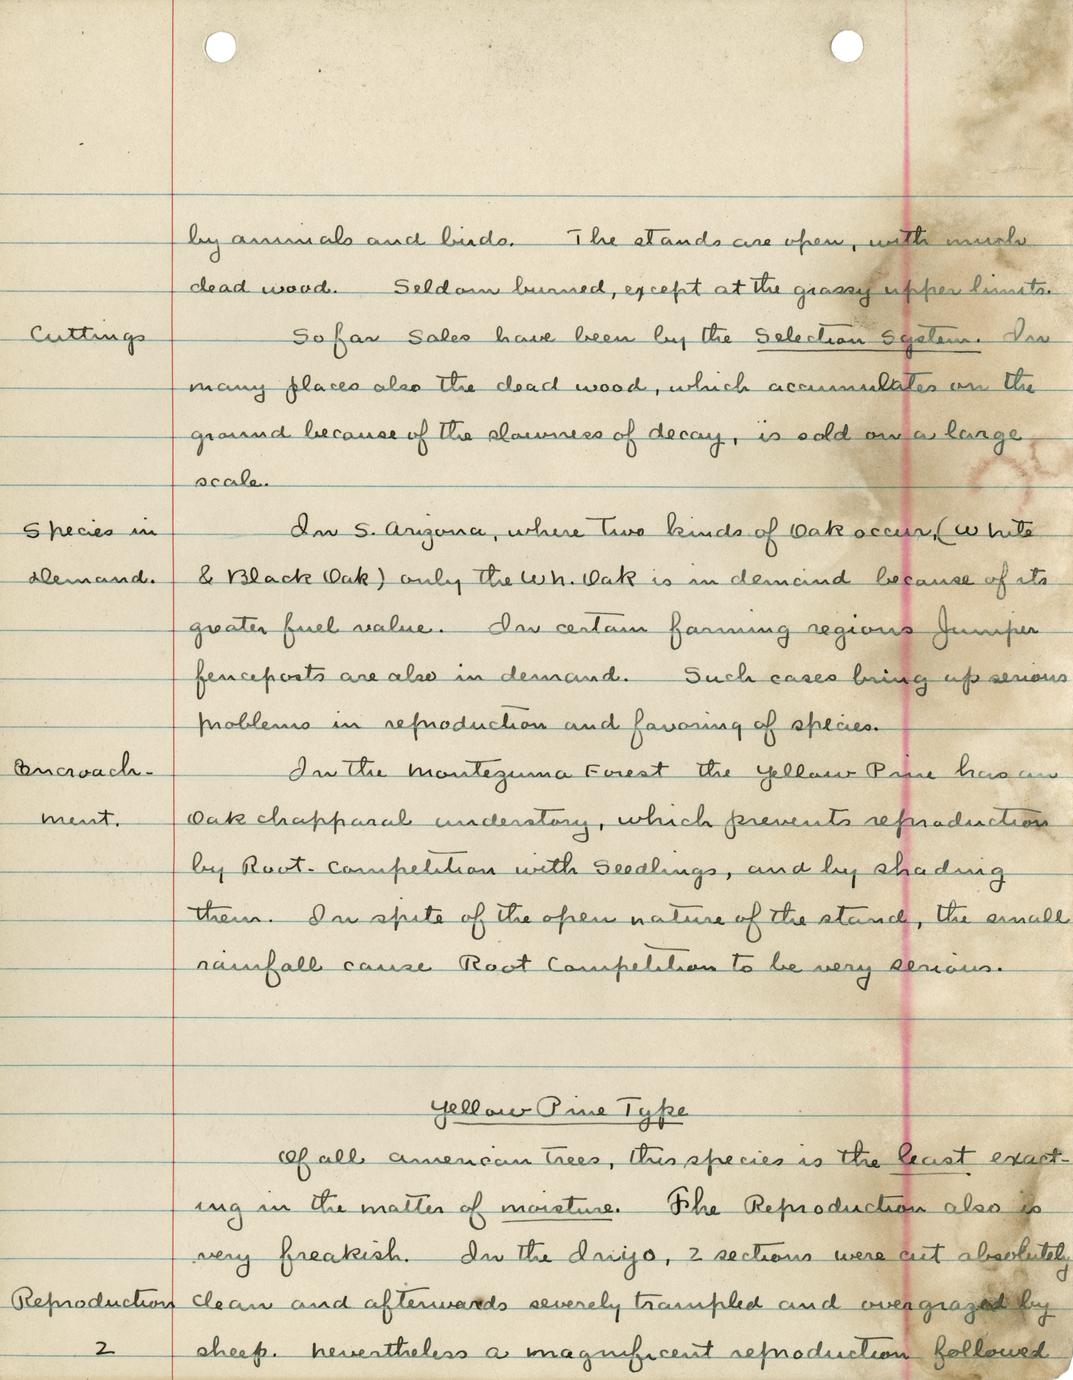 by animals and birds. The stands are open, with much
dead wood. Seldom burned, except at the grassy upper limits.
Cuttings So far Sales have been by the Selection System. In
many places also the dead wood, which accumulates on the
ground because of the slowness of decay, is sold on a large
scale.
Species in In S. Arizona, where two kinds of Oak occur, (White
demand. & Black Oak) only the Wh. Oak is in demand because of its
greater fuel value. In certain farming regions Juniper
fenceposts are also in demand. Such cases bring up serious
problems in reproduction and favoring of species.
Encroach- In the Montezuma Forest the Yellow Pine has an
ment. Oak chapparal understory, which prevents reproduction
by Root-Competition with Seedlings, and by shading
them. In spite of the open nature of the stand, the small
rainfall cause Root Competition to be very serious.
Yellow Pine Type
Of all american trees, this species is the least exact-
ing in the matter of moisture. The Reproduction also is
very freakish. In the Inyo, 2 sections were cut absolutely
Reproduction clean and afterwards severely trampled and overgrazed by
2 sheep. nevertheless a magnificent reproduction followed